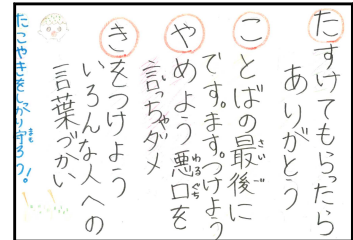 たすけてもらったら
ありがとう
ことばの最後に
です。ます。つけよう
やめよう悪口を
言っちゃダメ
きをつけよう
いろんな人への
言葉づかい
たこやきをしっかり守ろう!